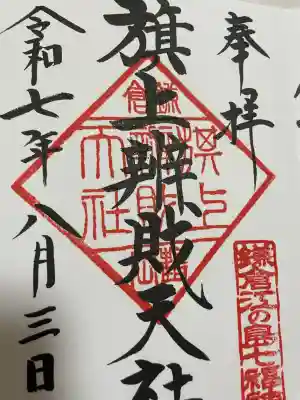 奉拝
旗上辨財天社
令和七年八月三日
鎌倉江の島七福神